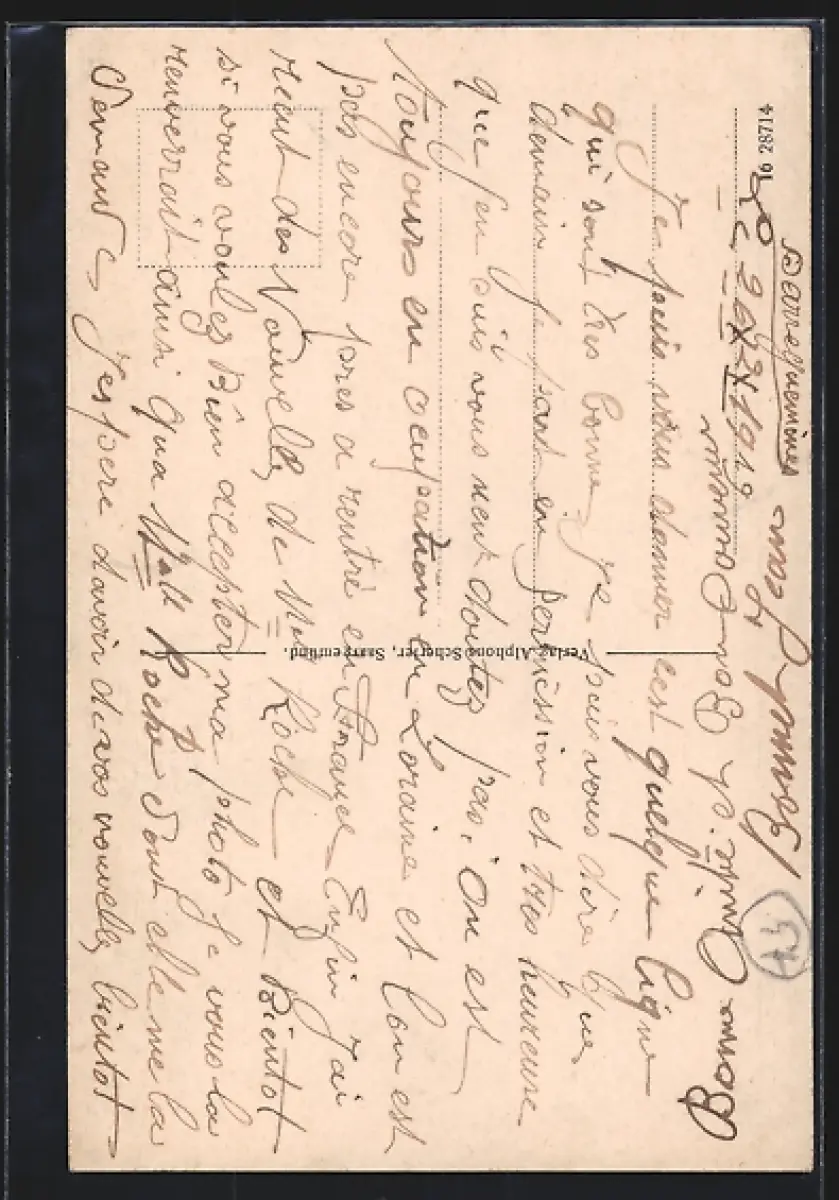 Sarreguemines
Le 26 X 1919
Je puis vous donner cest quelque ligne
qui sont tres bonne, je puis vous dire que
demain je part en permission et tres heureuse
que jen suis vous nent doutez pas, on est
toujours en occupation en Loraine et lon est
pas encore pres a rentré en France Enfin J'ai
recut des Nouvelle, de Mlle Roche et Bientot
si vous voulez Bien accepter ma photo Je vous la
renverrait ainsi qua Melle Roche dont elle me la
demande, J'espere davoir de vos nouvelle, bientot
Bonne Amitié. et Bon
16 28714
Verlag Alphons Scherier, Saargemünd.